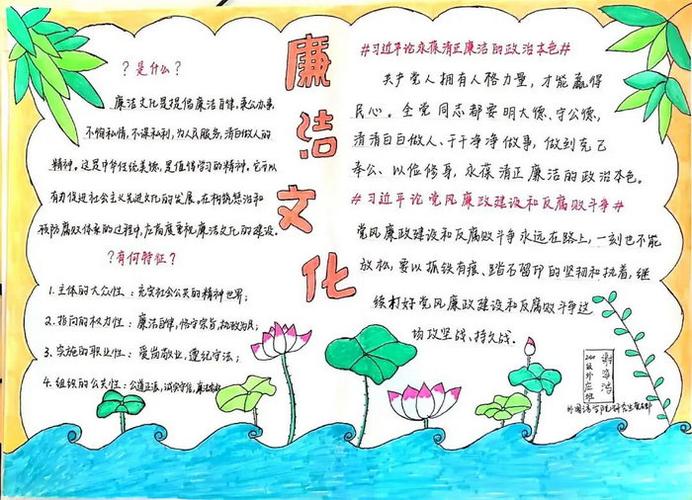 廉洁文化
?是什么?
廉洁文化是提倡廉洁自律、秉公办事
不徇私情、不谋私利、为人民服务、清白做人的
精神。这是中华传统美德,是值得学习的精神。它可以
有力促进社会主义先进文化的发展。在构筑惩治和
预防腐败体系的过程中,应高度重视廉洁文化的建设。
?有何特征?
1.主体的大众性:充实社会公共的精神世界;
2.指向的权力性:廉洁自律,恪守宗旨,执政为民;
3.实施的职业性:爱岗敬业,遵纪守法;
4.组织的公共性:公道正派,诚实守信,廉洁
#习近平论永葆清正廉洁的政治本色#
共产党人拥有人格力量,才能赢得
民心。全党同志都要明大德、守公德,
清清白白做人、干干净净做事,做到克己
奉公、以俭修身,永葆清正廉洁的政治本色。
#习近平论党风廉政建设和反腐败斗争#
党风廉政建设和反腐败斗争永远在路上,一刻也不能
放松,要以抓铁有痕、踏石留印的坚韧和执着,继
续打好党风廉政建设和反腐败斗争这
场攻坚战、持久战。